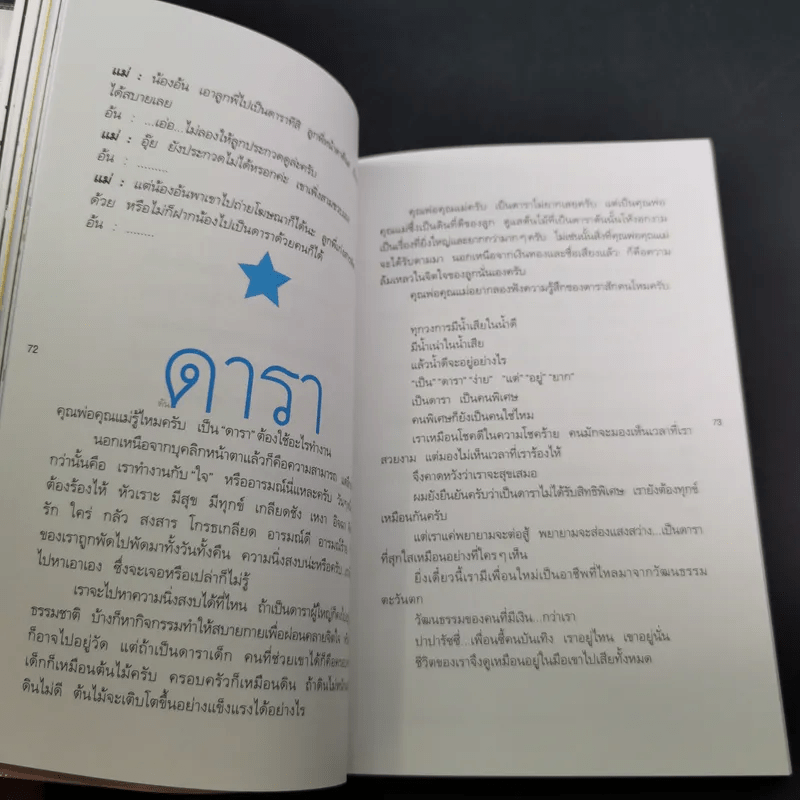 แม่ : น้องอ้น เอาลูกพี่ไปเป็นดาราทีสิ ลูกพี่
ได้สบายเลย
อ้น : ...เอ่อ...ไม่ลองให้ลูกประกวดดูล่ะครับ
แม่ : อุ๊ย ยังประกวดไม่ได้หรอกค่ะ เขาเพิ่ง
อ้น : .........
แม่ : แต่น้องอ้นพาเขาไปถ่ายโฆษณาก็ได้นะ
ด้วย หรือไม่ก็ฝากน้องไปเป็นดาราด้วยคนก็ได้
อ้น : ........
72
ต้น ดารา
คุณพ่อคุณแม่รู้ไหมครับ เป็น “ดารา” ต้องใช้อะไรทำงาน
นอกเหนือจากบุคลิกหน้าตาแล้วก็คือความสามารถ
กว่านั้นคือ เราทำงานกับ “ใจ” หรืออารมณ์นี่แหละครับ
ต้องร้องไห้ หัวเราะ มีสุข มีทุกข์ เกลียดชัง เหงา อิจฉา
รัก ใคร่ กลัว สงสาร โกรธเกลียด อารมณ์ดี อารมณ์ร้าย
ของเราถูกพัดไปพัดมาทั้งวันทั้งคืน ความนิ่งสงบน่ะหรือครับ
ไปหาเอาเอง ซึ่งจะเจอหรือเปล่าก็ไม่รู้
เราจะไปหาความนิ่งสงบได้ที่ไหน ถ้าเป็นดาราผู้ใหญ่
ธรรมชาติ บ้างก็หากิจกรรมทำให้สบายกายเพื่อผ่อนคลายจิตใจ
ก็อาจไปอยู่วัด แต่ถ้าเป็นดาราเด็ก คนที่ช่วยเขาได้ก็คือ
เด็กก็เหมือนต้นไม้ครับ ครอบครัวก็เหมือนดิน ถ้าดิน
ดินไม่ดี ต้นไม้จะเติบโตขึ้นอย่างแข็งแรงได้อย่างไร
คุณพ่อคุณแม่ครับ เป็นดาราไม่ยากเลยครับ แต่เป็นคุณพ่อ
คุณแม่ซึ่งเป็นดินที่ดีของลูก ดูแลต้นไม้ที่เป็นดาราต้นนั้นให้งอกงาม
เป็นเรื่องที่ยิ่งใหญ่และยากกว่ามากๆ ครับ ไม่เช่นนั้นสิ่งที่คุณพ่อคุณแม่
จะได้รับตามมา นอกเหนือจากเงินทองและชื่อเสียงแล้ว ก็คือความ
ล้มเหลวในจิตใจของลูกนั่นเองครับ
คุณพ่อคุณแม่อยากลองฟังความรู้สึกของดาราสักคนไหมครับ
ทุกวงการมีน้ำเสียในน้ำดี
มีน้ำเน่าในน้ำเสีย
แล้วน้ำดีจะอยู่อย่างไร
“เป็น” “ดารา” “ง่าย” “แต่” “อยู่” “ยาก”
เป็นดารา เป็นคนพิเศษ
คนพิเศษก็ยังเป็นคนใช่ไหม
เราเหมือนโชคดีในความโชคร้าย คนมักจะมองเห็นเวลาที่เรา
สวยงาม แต่มองไม่เห็นเวลาที่เราร้องไห้
73
จึงคาดหวังว่าเราจะสุขเสมอ
ผมยังยืนยันครับว่าเป็นดาราไม่ได้รับสิทธิพิเศษ เรายังต้องทุกข์
เหมือนกันครับ
แต่เราแค่พยายามจะต่อสู้ พยายามจะส่องแสงสว่าง...เป็นดารา
ที่สุกใสเหมือนอย่างที่ใครๆ เห็น
ยิ่งเดี๋ยวนี้เรามีเพื่อนใหม่เป็นอาชีพที่ไหลมาจากวัฒนธรรม
ตะวันตก
วัฒนธรรมของคนที่มีเงิน...กว่าเรา
ปาปารัซซี่...เพื่อนซี้คนบันเทิง เราอยู่ไหน เขาอยู่นั่น
ชีวิตของเราจึงดูเหมือนอยู่ในมือเขาไปเสียทั้งหมด